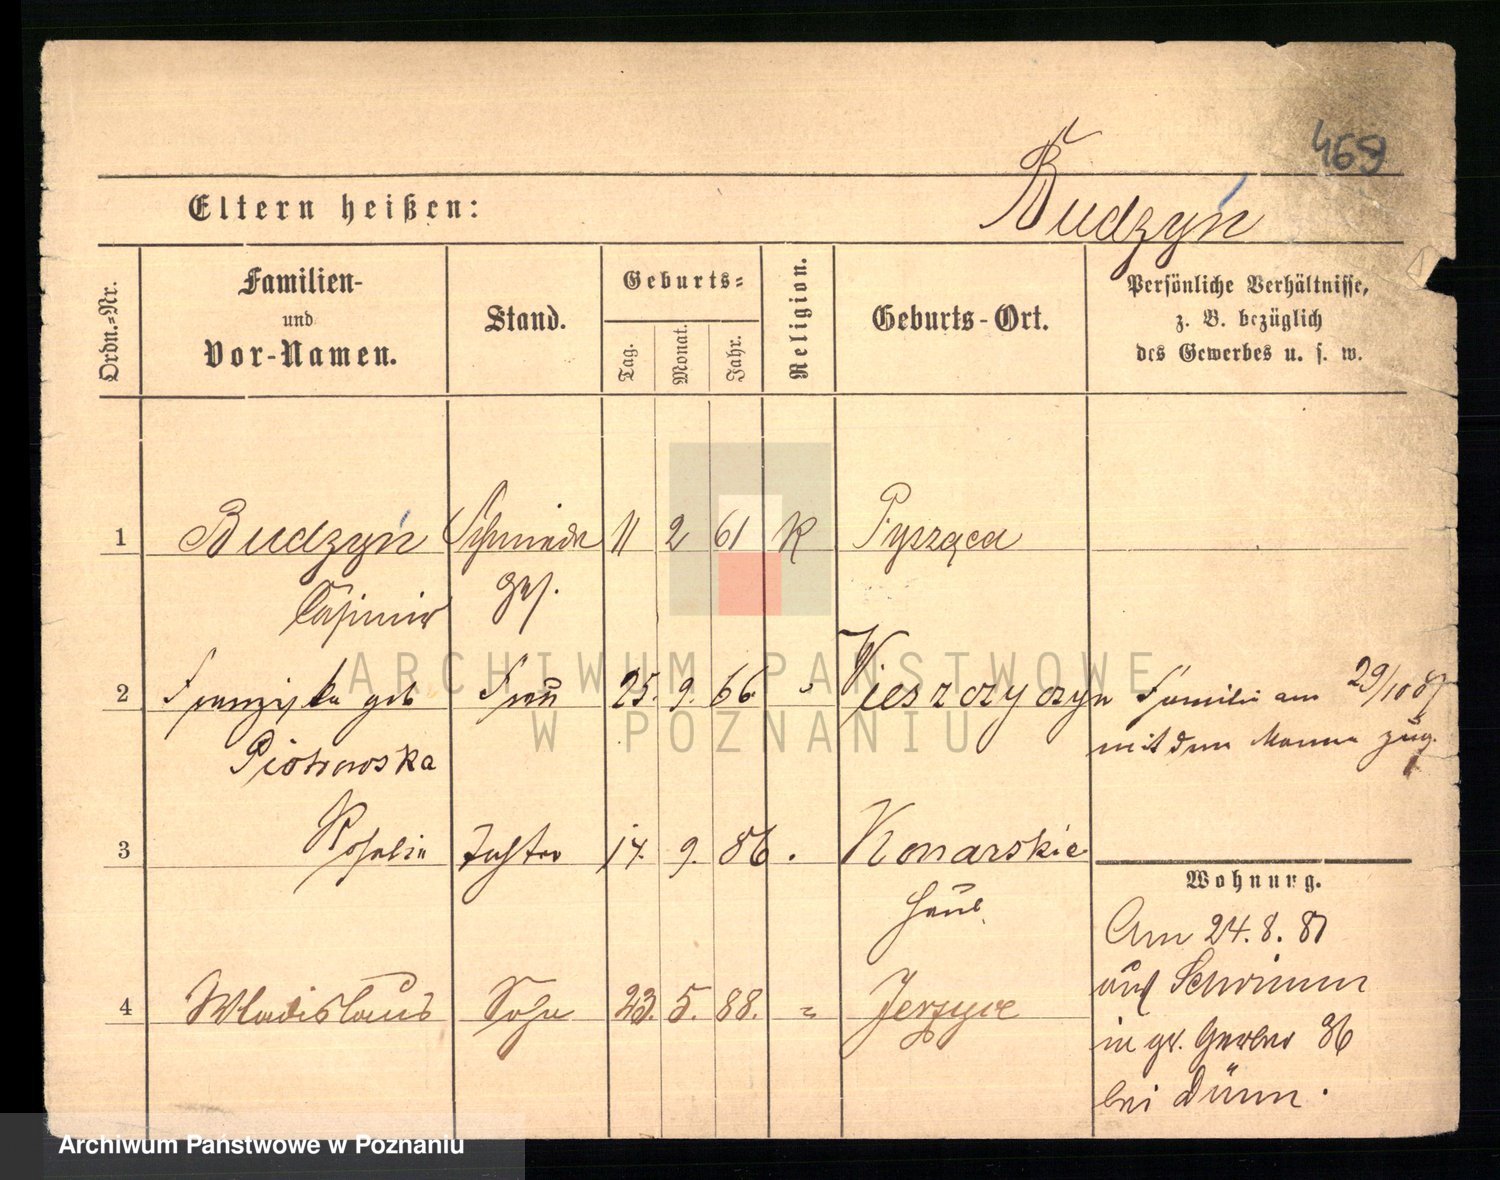 469
Budzyń
Eltern heißen:
Ordn.=Nr.
Familien-
und
Vor-Namen.
Stand.
Geburts=
Tag.
Monat.
Jahr.
Religion.
Geburts-Ort.
Persönliche Verhältnisse,
z. B. bezüglich
des Gewerbes u. s. w.
1 Budzyń Schmiede 11 2 61 K Pysząca
Casimir ges.
2 Franziska geb Frau 25. 9. 66 " Wieszczyczyn Familie am 29/10 87
Piotrowska mit dem Manne zug.
3 Rosalie Tochter 14. 9. 86 Konarskie
Haul.
4 Wladislaus Sohn 23. 5. 88. " Jerzyce
Wohnung.
Am 24.8.87
auf Schrimm
in gr. Gerber 36
bei Dünn.
ARCHIWUM PAŃSTWOWE
W POZNANIU
Archiwum Państwowe w Poznaniu